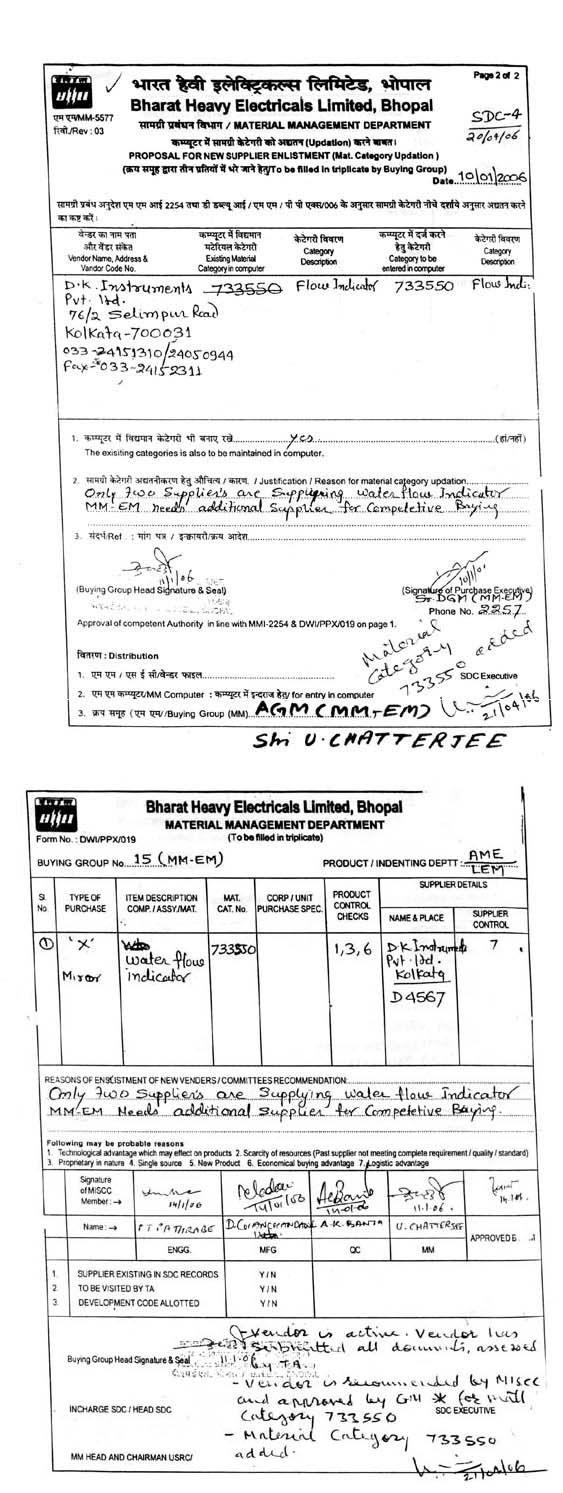 Page 2 of 2
भारत हेवी इलेक्ट्रिकल्स लिमिटेड, भोपाल
Bharat Heavy Electricals Limited, Bhopal
एम एम/MM-5577
रिवी./Rev : 03
SDC-4
20/04/06
सामग्री प्रबंधन विभाग / MATERIAL MANAGEMENT DEPARTMENT
कम्प्यूटर में सामग्री केटेगरी को अद्यतन (Updation) करने बाबत।
PROPOSAL FOR NEW SUPPLIER ENLISTMENT (Mat. Category Updation )
(क्रय समूह द्वारा तीन प्रतियों में भरे जाने हेतु/To be filled in triplicate by Buying Group)
Date 10/01/2006
सामग्री प्रबंध अनुदेश एम एम आई 2254 तथा डी डब्ल्यू आई / एम एम / पी पी एक्स/006 के अनुसार सामग्री केटेगरी नीचे दर्शाये अनुसार अद्यतन करने
का कष्ट करें।
वेन्डर का नाम पता और वेंडर संकेत Vendor Name, Address & Vandor Code No.
कम्प्यूटर में विद्यमान मटेरियल केटेगरी Existing Material Category in computer
केटेगरी विवरण Category Description
कम्प्यूटर में दर्ज करने हेतु केटेगरी Category to be entered in computer
केटेगरी विवरण Category Description
D.K. Instruments 733550 Flow Indicator 733550 Flow Indi
Pvt. ltd.
76/2 Selimpur Road
Kolkata-700031
033-24151310/24050944
Fax-033-24152311
1. कम्प्यूटर में विद्यमान केटेगरी भी बनाए रखे yes (हां/नहीं)
The exisiting categories is also to be maintained in computer.
2. सामग्री केटेगरी अद्यतनीकरण हेतु औचित्य / कारण. / Justification / Reason for material category updation
Only two Supplier's are Supplying water flow Indicator
MM-EM needs additional Supplier for Competetive Buying
3. संदर्भ/Ref : मांग पत्र / इन्क्वायरी/क्रय आदेश
11/1/06
10/1/06
(Buying Group Head Signature & Seal)
(Signature of Purchase Executive)
Sr. DGM (MM-EM)
Phone No. 2257
Approval of competent Authority in line with MMI-2254 & DWI/PPX/019 on page 1.
Material
Category
733550 added
वितरण : Distribution
1. एम एम / एस ई सी/वेन्डर फाइल
SDC Executive
2. एम एम कम्प्यूटर/MM Computer : कम्प्यूटर में इन्दराज हेतु/ for entry in computer
3. क्रय समूह (एम एम//Buying Group (MM) AGM (MM-EM)
21/04/06
Shri U. CHATTERJEE
Bharat Heavy Electricals Limited, Bhopal
MATERIAL MANAGEMENT DEPARTMENT
Form No. : DWI/PPX/019
(To be filled in triplicate)
BUYING GROUP No. 15 (MM-EM)
PRODUCT / INDENTING DEPTT : AME
LEM
Sl. No.
TYPE OF PURCHASE
ITEM DESCRIPTION COMP. / ASSY./MAT.
MAT. CAT. No.
CORP / UNIT PURCHASE SPEC.
PRODUCT CONTROL CHECKS
SUPPLIER DETAILS
NAME & PLACE
SUPPLIER CONTROL
① 'X' water flow 733550 1,3,6 D.K Instruments 7
Minor indicator Pvt. ltd.
Kolkata
D4567
REASONS OF ENSCISTMENT OF NEW VENDERS / COMMITTEES RECOMMENDATION
Only two Supplier's are Supplying water flow Indicator
MM-EM Needs additional Supplier for Competetive Buying.
Following may be probable reasons
1. Technological advantage which may effect on products 2. Scarcity of resources (Past supplier not meeting complete requirement / quality / standard)
3. Proprietary in nature 4. Single source 5. New Product 6. Economical buying advantage 7. Logistic advantage
Signature of MISCC Member : →
14/1/06
14/01/06
11.1.06
Name: →
A.K. BANTA
U. CHATTERJEE
APPROVED B
ENGG. MFG QC MM
1. SUPPLIER EXISTING IN SDC RECORDS Y / N
2. TO BE VISITED BY TA Y / N
3. DEVELOPMENT CODE ALLOTTED Y / N
- Vendor is active. Vendor has
submitted all documents, assessed
Buying Group Head Signature & Seal 11.1.06 by TA.
- Vendor is recommended by MISCC
and approved by GM * for matl
INCHARGE SDC / HEAD SDC
Category 733550
SDC EXECUTIVE
- Material Category 733550
added.
MM HEAD AND CHAIRMAN USRC/
21/04/06